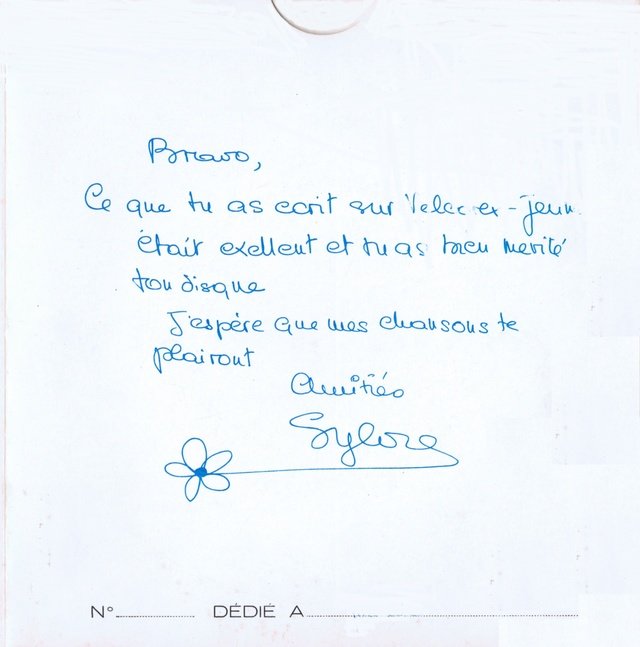 Bravo,
Ce que tu as ecrit sur ex-jeun
était exellent et tu as bien merité
ton disque
J'espère que mes chansons te
plairont
Amitiés
Sylvie
N° DÉDIÉ A